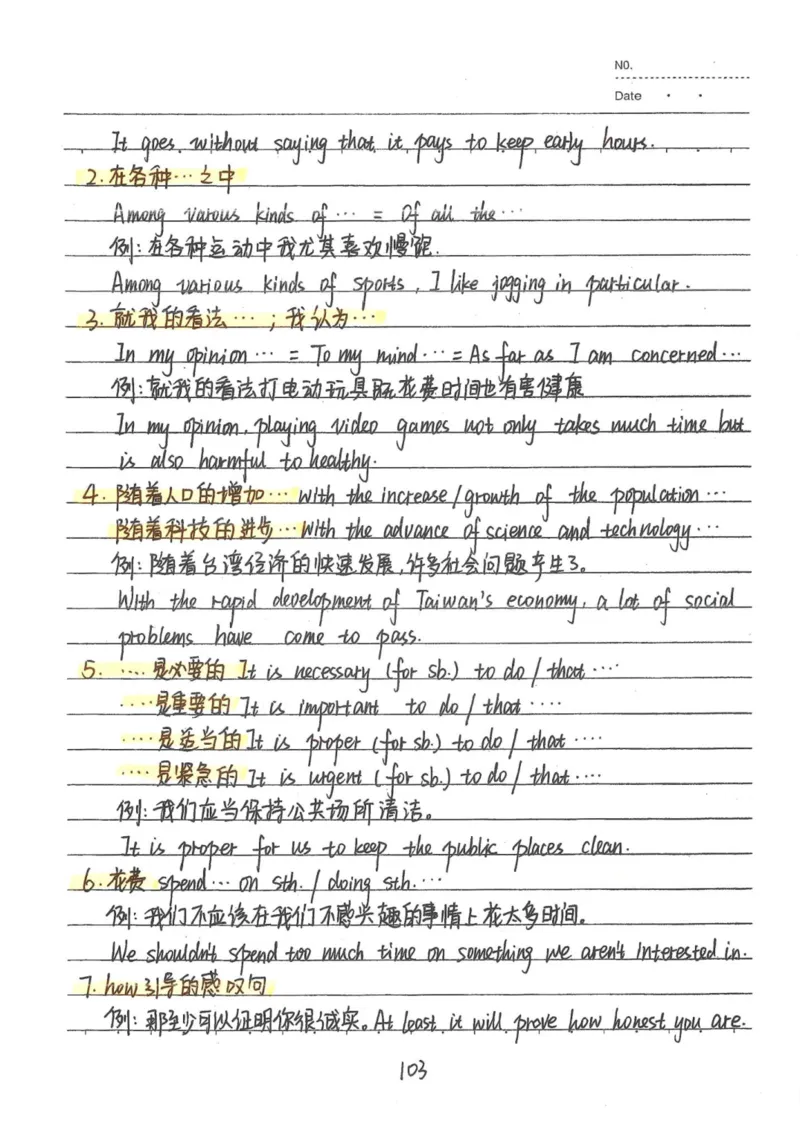 NO.
Date
It goes without saying that it pays to keep early hours.
2.在各种…之中
Among varous kinds of … = Of all the …
例:在各种运动中我尤其喜欢慢跑.
Among various kinds of sports, I like jogging in particular.
3.就我的看法…;我认为…
In my opinion … = To my mind … = As far as I am concerned …
例:就我的看法打电动玩具既花费时间也有害健康
In my opinion, playing video games not only takes much time but
is also harmful to healthy.
4.随着人口的增加… with the increase/growth of the population …
随着科技的进步… With the advance of science and technology …
例:随着台湾经济的快速发展,许多社会问题产生了。
With the rapid development of Taiwan's economy, a lot of social
problems have come to pass.
5. ….是必要的 It is necessary (for sb.) to do / that ….
….是重要的 It is important to do / that ….
….是适当的 It is proper (for sb.) to do / that ….
….是紧急的 It is urgent (for sb.) to do / that ….
例:我们应当保持公共场所清洁。
It is proper for us to keep the public places clean.
6.花费 spend … on sth. / doing sth. …
例:我们不应该在我们不感兴趣的事情上花太多时间。
We shouldn't spend too much time on something we aren't interested in.
7. how引导的感叹句
例:那至少可以证明你很诚实。At least it will prove how honest you are.
103